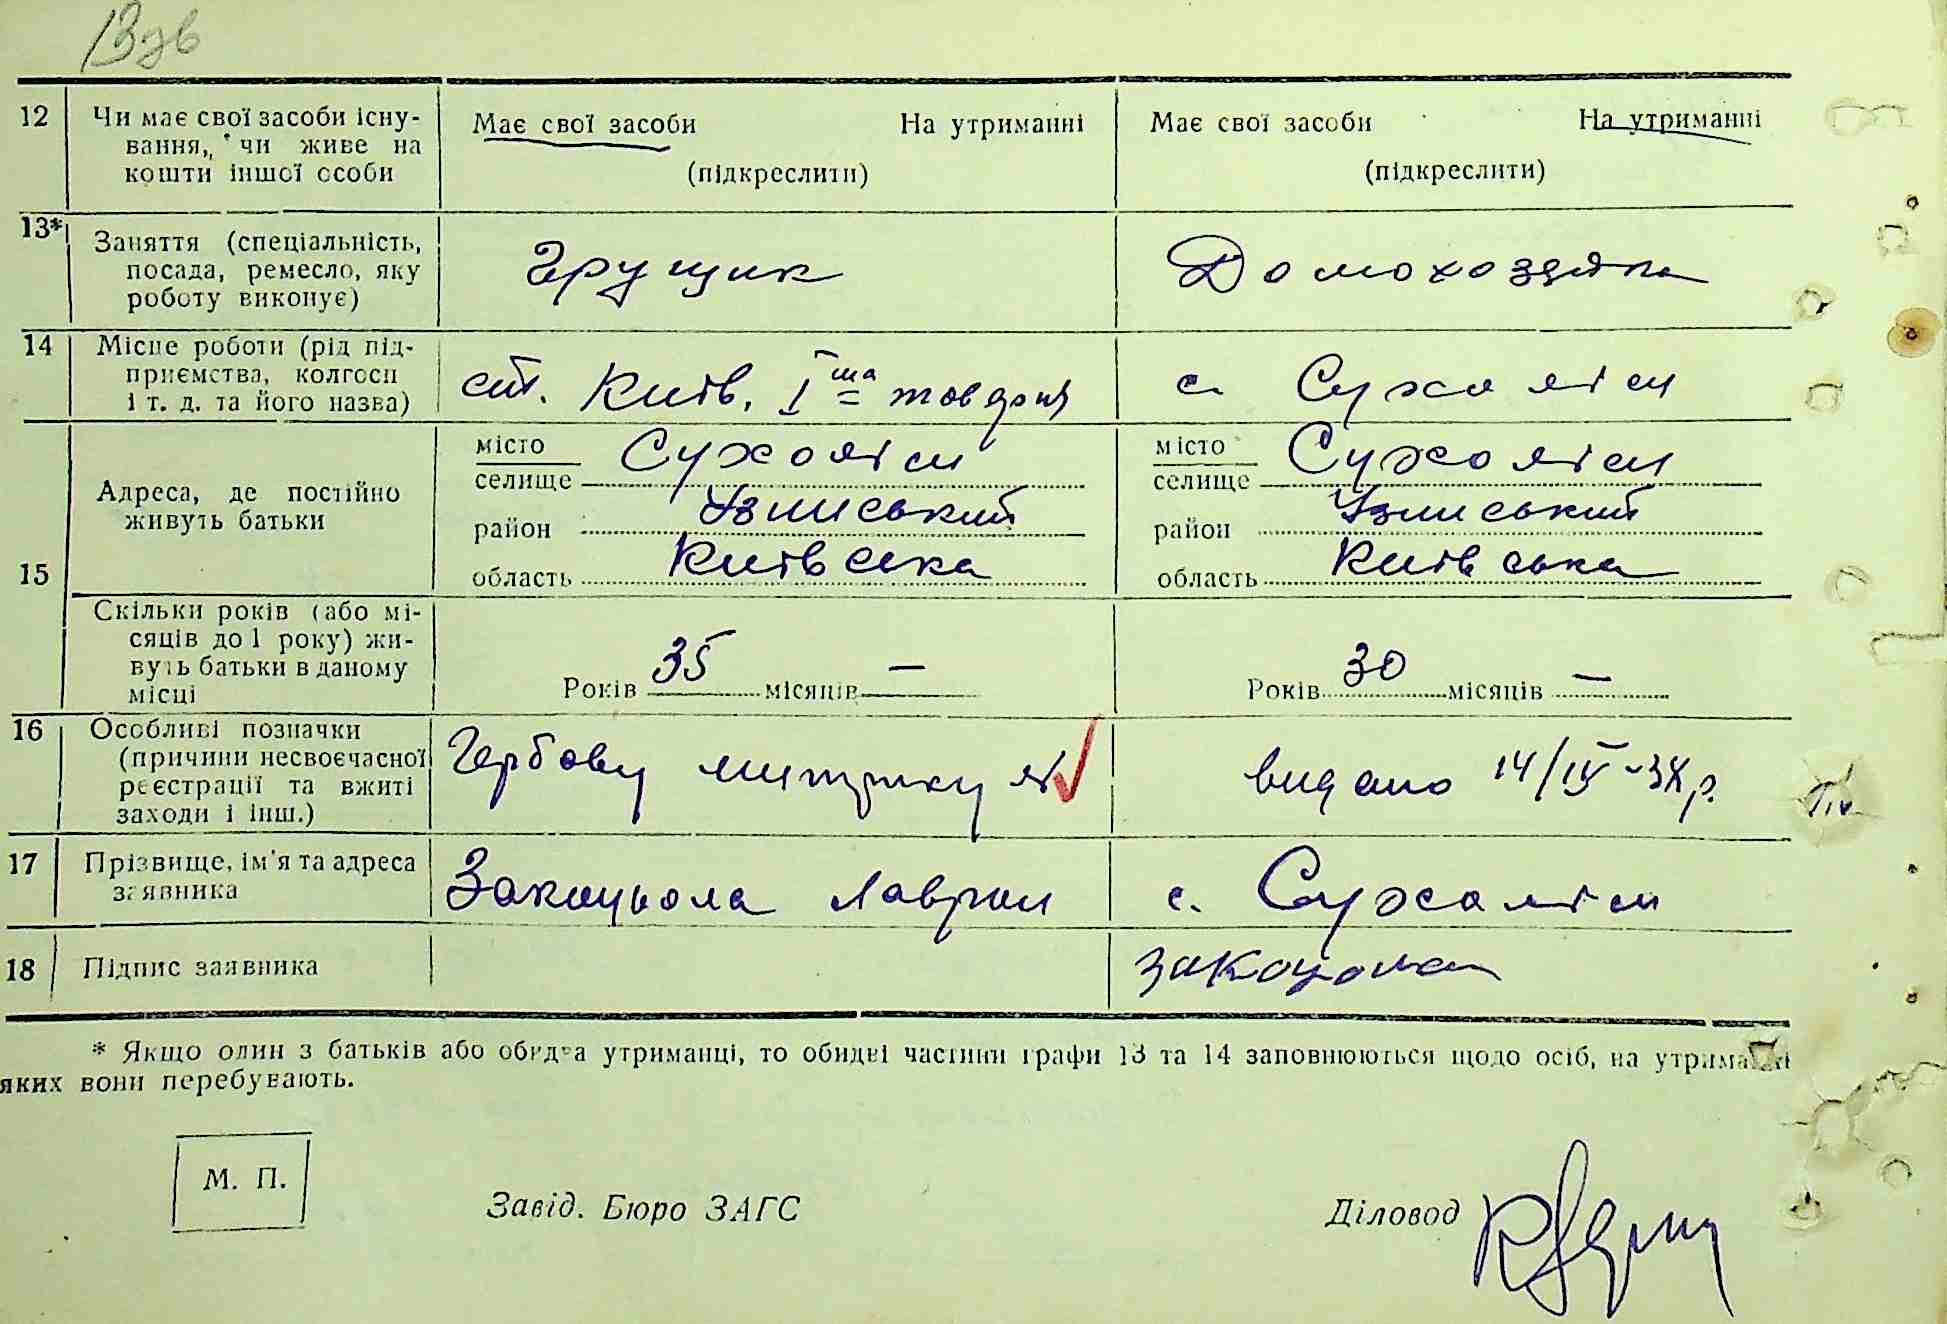 13зв
12 Чи має свої засоби існу- Має свої засоби На утриманні Має свої засоби На утриманні
вання, чи живе на
кошти іншої особи (підкреслити) (підкреслити)
13* Заняття (спеціальність, Грущик Домохозяйка
посада, ремесло, яку
роботу виконує)
14 Місце роботи (рід під-
приємства, колгосп ст. Київ, I ша жовтня с. Сухоліси
і т. д. та його назва)
місто Сухоліси місто Сухоліси
селище селище
Адреса, де постійно
живуть батьки район Узинський район Узинський
15 область Київська область Київська
Скільки років (або мі-
сяців до 1 року) жи-
вуть батьки в даному
місці Років 35 місяців — Років 30 місяців —
16 Особливі позначки
(причини несвоєчасної Гербову видано 14/IV-38р.
реєстрації та вжиті
заходи і інш.)
17 Прізвище, ім'я та адреса
заявника Закацьола Лаврін с. Сухаліси
18 Підпис заявника Закоцола
* Якщо один з батьків або обидва утриманці, то обидві частини графи 13 та 14 заповнюються щодо осіб, на утриманні
яких вони перебувають.
М. П.
Завід. Бюро ЗАГС Діловод